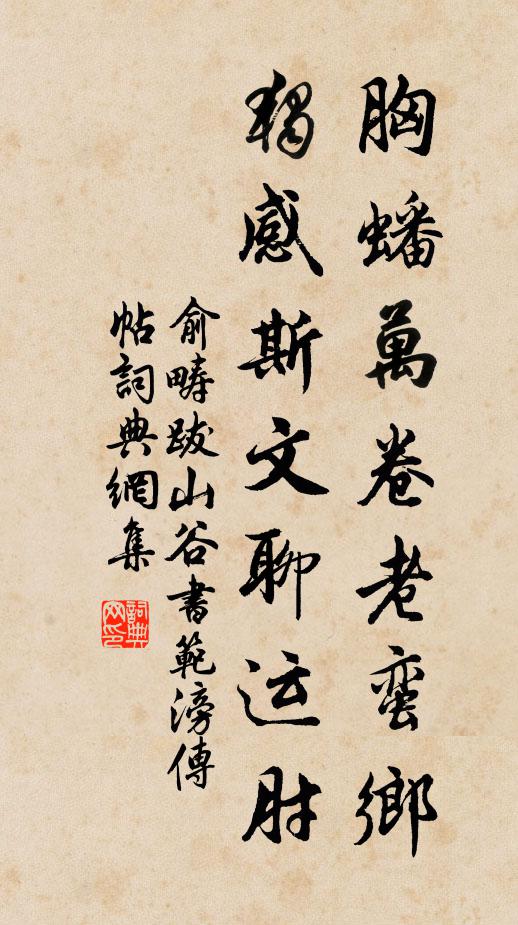 胸蟠萬卷老蛮鄉
獨感斯文聊运肘
俞疇跋山谷書範滂傳
帖詞典網集
詞典网印